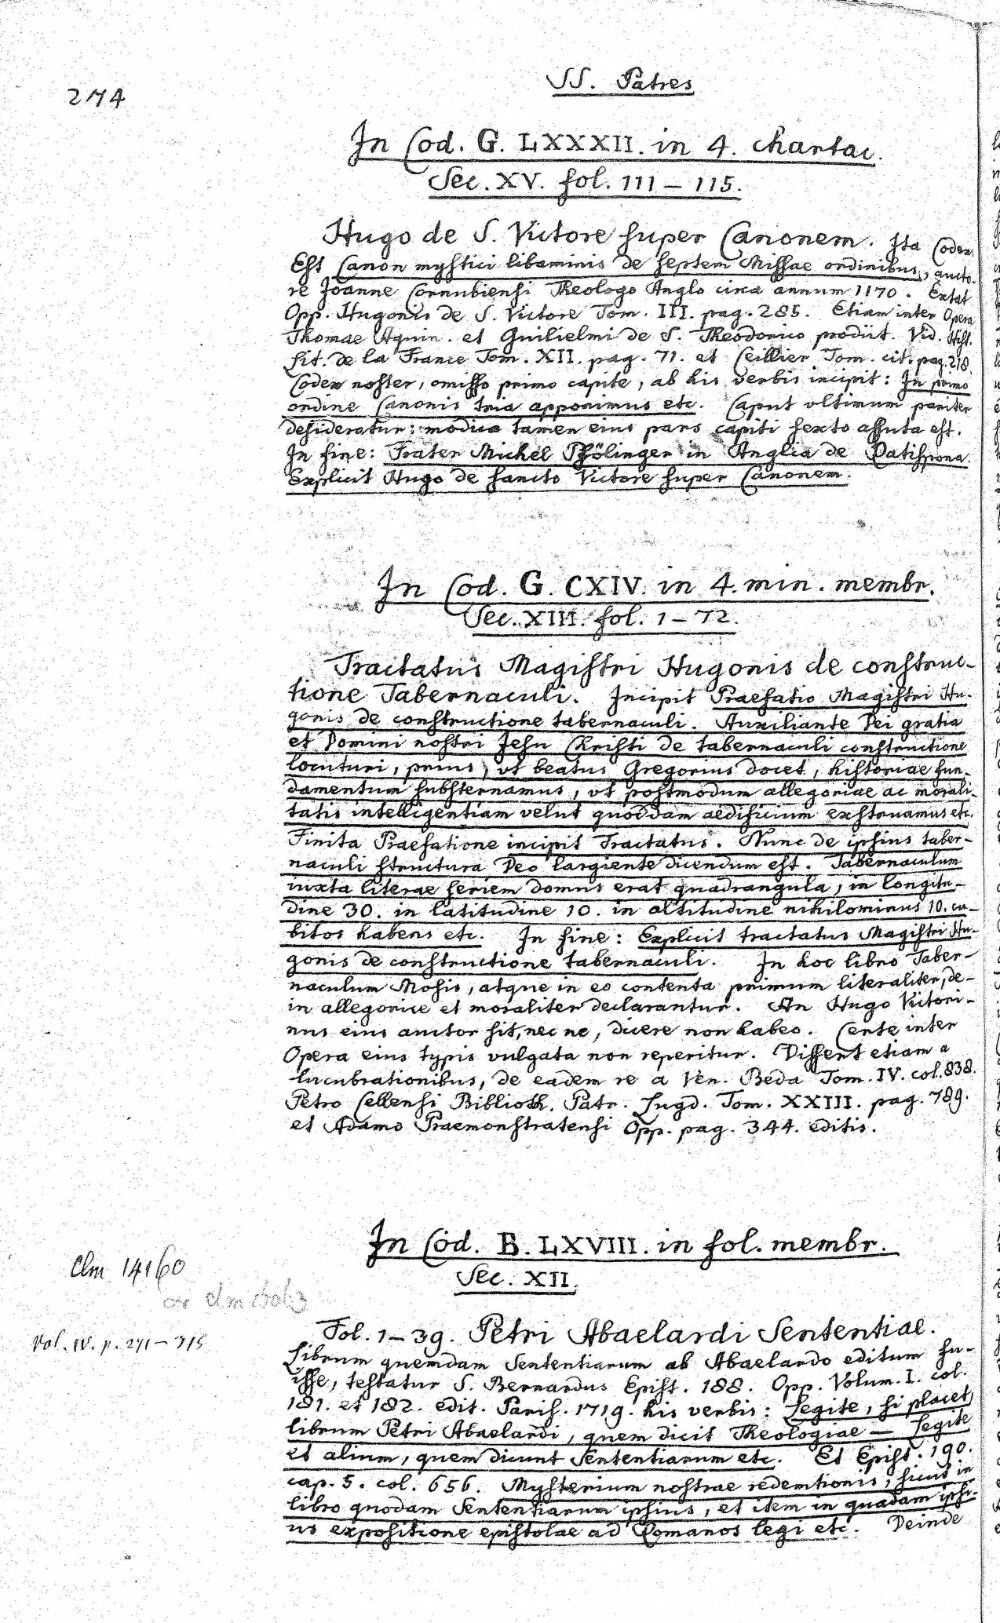 274
SS. Patres
In Cod. G. LXXXII. in 4. chartac.
Sec. XV. fol. 111 – 115.
Hugo de S. Victore super Canonem. Ita Codex
Est Canon mystici libaminis de septem Missae ordinibus, aucto-
re Joanne Cornubiensi Theologo Anglo circa annum 1170. Extat
Opp. Hugonis de S. Victore Tom. III. pag. 285. Etiam inter Opera
Thomae Aquin. et Guilielmi de S. Theodorico prodiit. Vid. Hist.
lit. de la France Tom. XII. pag. 71. et Ceillier Tom. cit. pag. 218.
Codex noster, omisso primo capite, ab his verbis incipit: In primo
ordine Canonis tria apponimus etc. Caput ultimum pariter
desideratur: modica tamen eius pars capiti sexto assuta est.
In fine: Frater Michel Pfölinger in Anglia de Ratispona.
Explicit Hugo de sancto Victore super Canonem.
In Cod. G. CXIV. in 4. min. membr.
Sec. XIII. fol. 1 – 72.
Tractatus Magistri Hugonis de construc-
tione Tabernaculi. Incipit Praefatio Magistri Hu-
gonis de constructione tabernaculi. Auxiliante Dei gratia
et Domini nostri Jesu Christi de tabernaculi constructione
locuturi, prius, vt beatus Gregorius docet, historiae fun-
damentum substernamus, vt postmodum allegoriae ac morali-
tatis intelligentiam velut quoddam aedificium exstruamus etc.
Finita Praefatione incipit Tractatus. Nunc de ipsius taber-
naculi structura Deo largiente dicendum est. Tabernaculum
iuxta literae seriem domus erat quadrangula, in longitu-
dine 30. in latitudine 10. in altitudine nihilominus 10. cu-
bitos habens etc. In fine: Explicit tractatus Magistri Hu-
gonis de constructione tabernaculi. In hoc libro Taber-
naculum Mosis, atque in eo contenta primum literaliter, de-
in allegorice et moraliter declarantur. An Hugo Victori-
nus eius auctor sit, nec ne, dicere non habeo. Certe inter
Opera eius typis vulgata non reperitur. Differt etiam a
lucubrationibus, de eadem re a Ven. Beda Tom. IV. col. 838.
Petro Cellensi Biblioth. Patr. Lugd. Tom. XXIII. pag. 789.
et Adamo Praemonstratensi Opp. pag. 344. editis.
In Cod. B. LXVIII. in fol. membr.
Sec. XII.
Clm 14160
Vol. IV. p. 271 – 315
Fol. 1 – 39. Petri Abaelardi Sententiae.
Librum quemdam Sententiarum ab Abaelardo editum fu-
isse, testatur S. Bernardus Epist. 188. Opp. Volum. I. col.
181. et 182. edit. Paris. 1719. his verbis: Legite, si placet,
librum Petri Abaelardi, quem dicit Theologiae — Legite
et alium, quem dicunt Sententiarum etc. Et Epist. 190.
cap. 5. col. 656. Mysterium nostrae redemtionis, sicut in
libro quodam Sententiarum ipsius, et item in quadam ipsi-
us expositione epistolae ad Romanos legi etc. Deinde